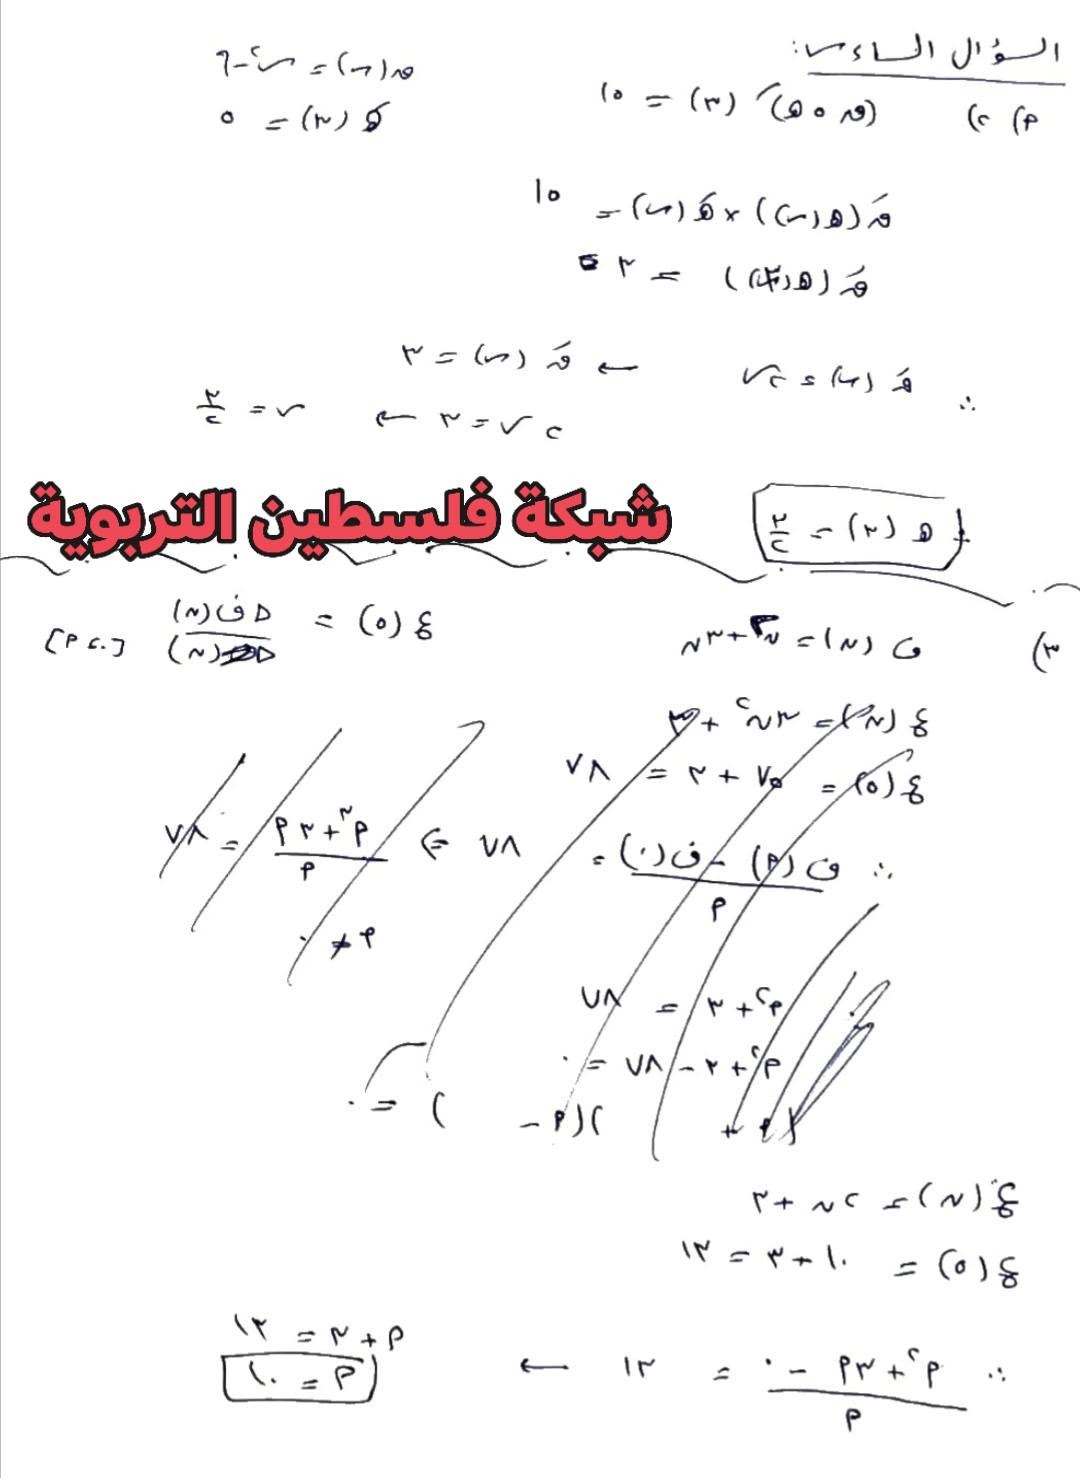 السؤال السادس:
٢) (٢ (ق ٥ هـ)َ (٣) = ١٥
ق(س) = س٢ - ٦
هـَ (٣) = ٥
قَ (هـ(س)) × هـَ (س) = ١٥
قَ (هـ(٣)) = ٣
∴ قَ (س) = ٢س ← قَ (س) = ٣
٢س = ٣ ← س = ٣/٢
هـ (٣) = ٣/٢
شبكة فلسطين التربوية
٣) ف (ن) = ن٢ + ٣ن
ع (٥) = Δف(ن) / Δ(ن) [٠، ٢]
ع (ن) = ٣ن٢ + ٣
ع (٥) = ٧٥ + ٣ = ٧٨
∴ ف (م) - ف(٠) / م = ٧٨ ⇐ م٣ + ٣م / م = ٧٨
م ≠ ٠
م٢ + ٣ = ٧٨
م٢ + ٣ - ٧٨ = ٠
(م + )(م - ) = ٠
ع (ن) = ٢ن + ٣
ع (٥) = ١٠ + ٣ = ١٣
∴ م٢ + ٣م - ٠ / م = ١٣ ←
م + ٣ = ١٣
م = ١٠